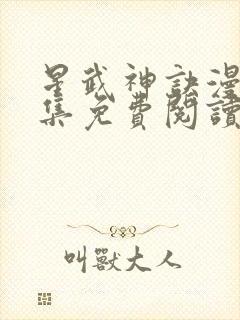 星武神訣漫
集免費閱讀
叫獸大人